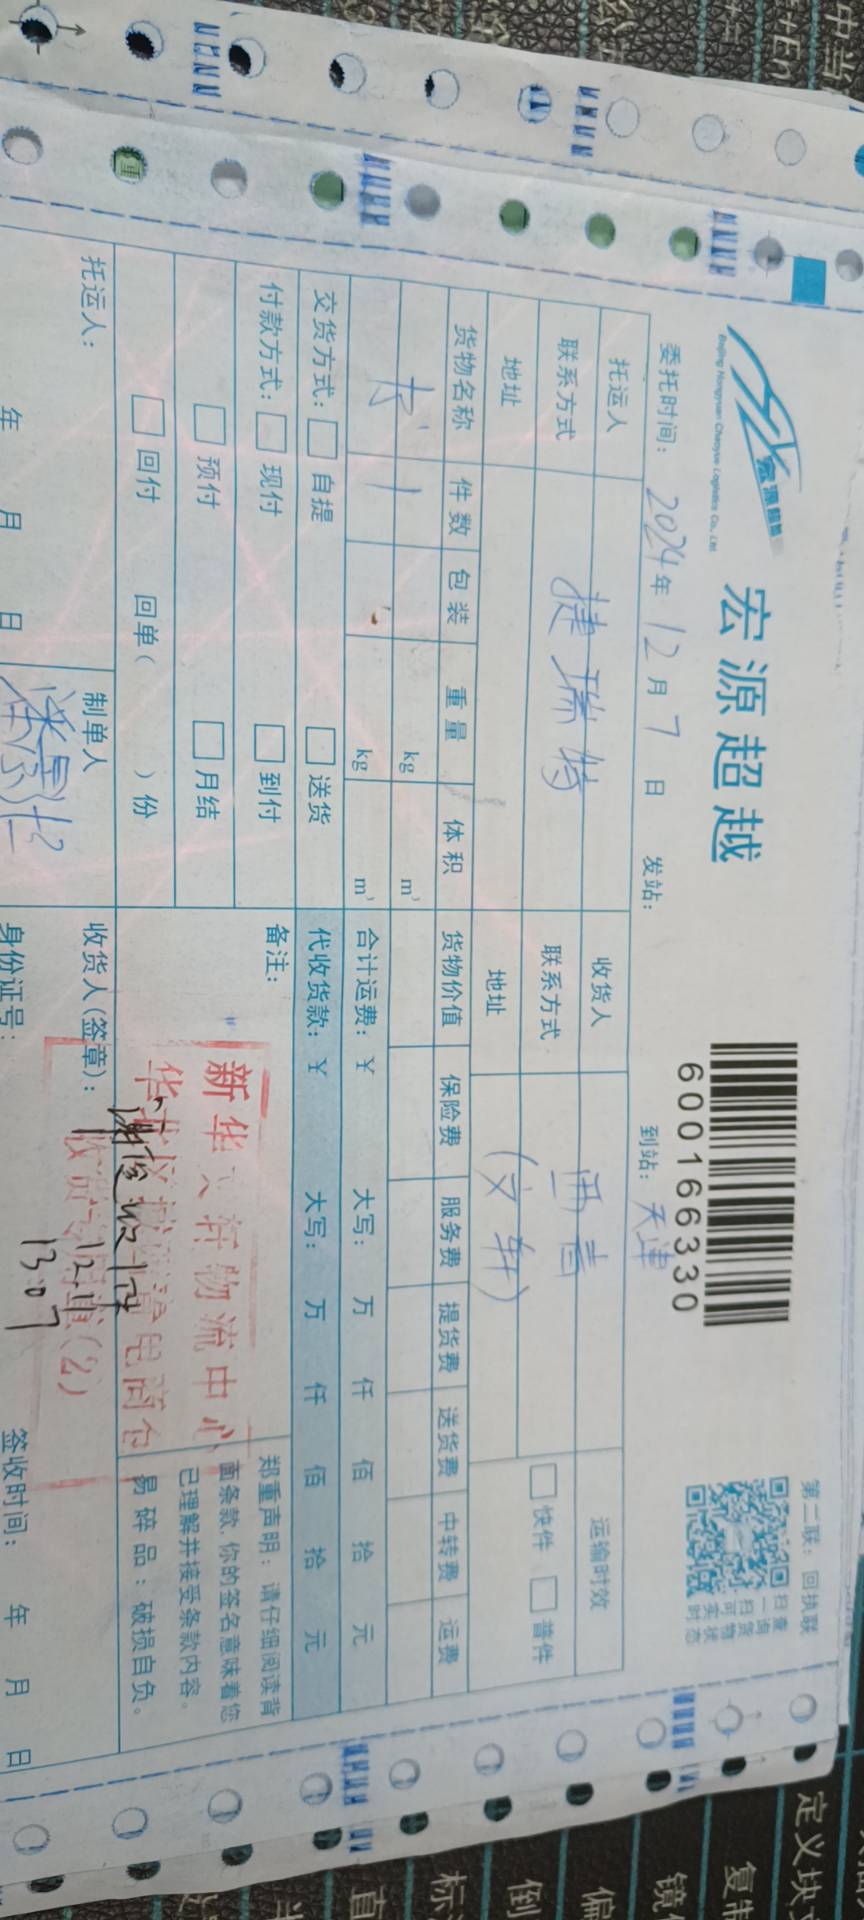 宏源超越
Beijing Hongyuan Chaoyue Logistics Co., Ltd.
600166330
第二联：回执联
扫一扫可实时
查询货物状态
委托时间：2024年12月7日 发站： 到站：天津
托运人 捷瑞特 收货人 西青 运输时效
联系方式 联系方式 □快件 □普件
地址 地址 (文轩)
货物名称 件数 包装 重量 体积 货物价值 保险费 服务费 提货费 送货费 中转费 运费
书 1 kg m³
kg m³ 合计运费：￥ 大写： 万 仟 佰 拾 元
交货方式：□自提 □送货 代收货款：￥ 大写： 万 仟 佰 拾 元
付款方式：□现付 □到付 备注：
□预付 □月结
□回付 回单( )份
新华文轩物流中心
收货专用章(2)
郑重声明：请仔细阅读背
面条款,你的签名意味着您
已理解并接受条款内容。
易碎品：破损自负。
托运人： 制单人 收货人(签章)：
12.11
13:07
年 月 日 身份证号： 签收时间： 年 月 日
中当
定义块
复制
镜
偏
倒
标
直